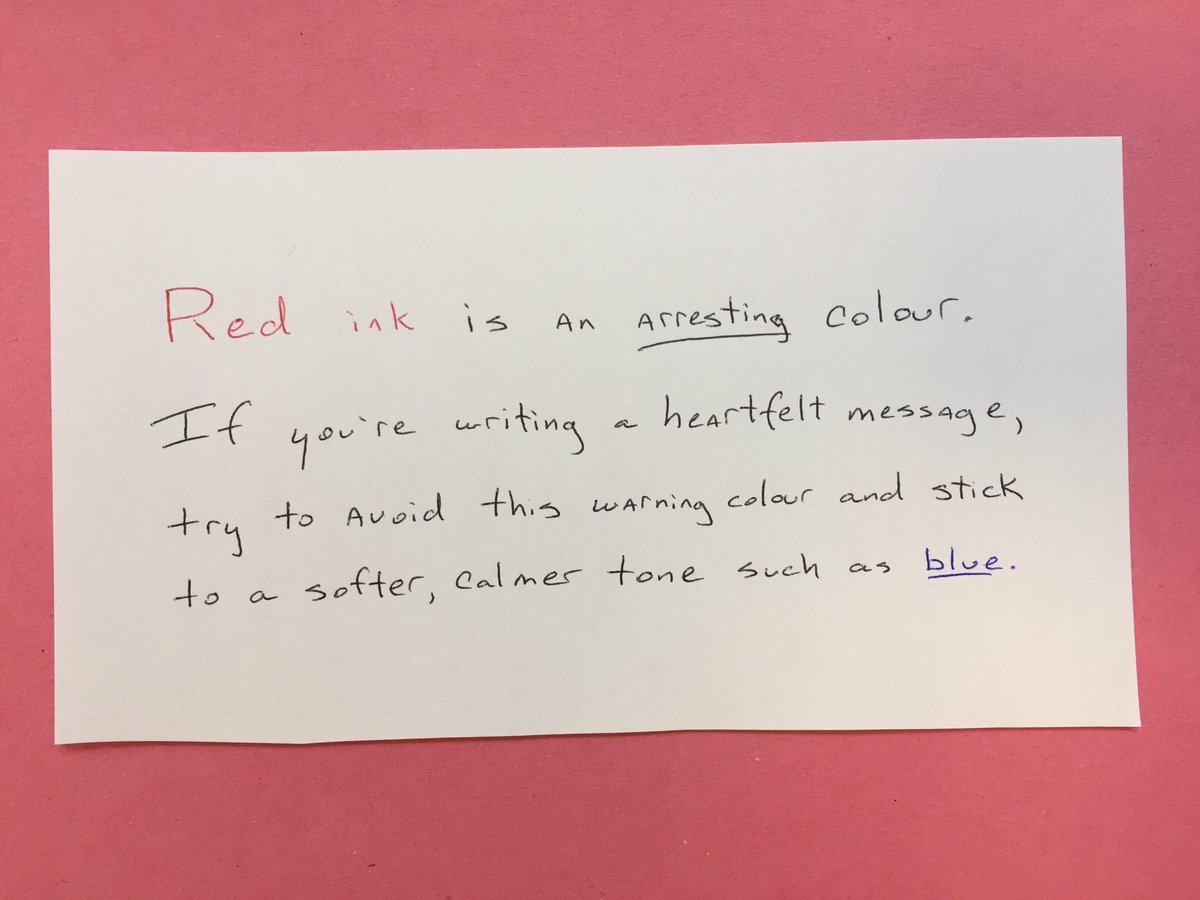 Red ink is an arresting colour.
If you're writing a heartfelt message,
try to avoid this warning colour and stick
to a softer, calmer tone such as blue.